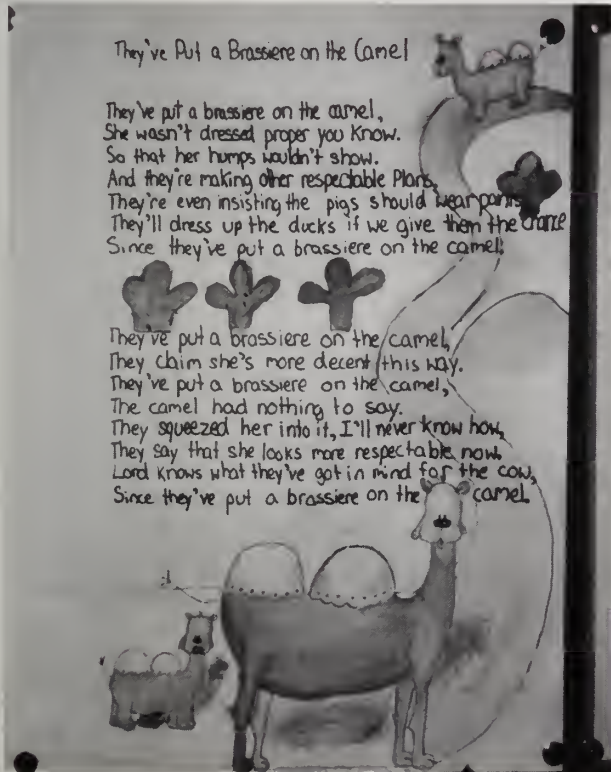 They've Put a Brassiere on the Camel
They've put a brassiere on the camel,
She wasn't dressed proper you know.
So that her humps wouldn't show.
And they're making other respectable Plans,
They're even insisting the pigs should wear pants
They'll dress up the ducks if we give them the chance
Since they've put a brassiere on the camel.
They've put a brassiere on the camel,
They claim she's more decent this way.
They've put a brassiere on the camel,
The camel had nothing to say.
They squeezed her into it, I'll never know how,
They say that she looks more respectable now,
Lord knows what they've got in mind for the cow,
Since they've put a brassiere on the camel.